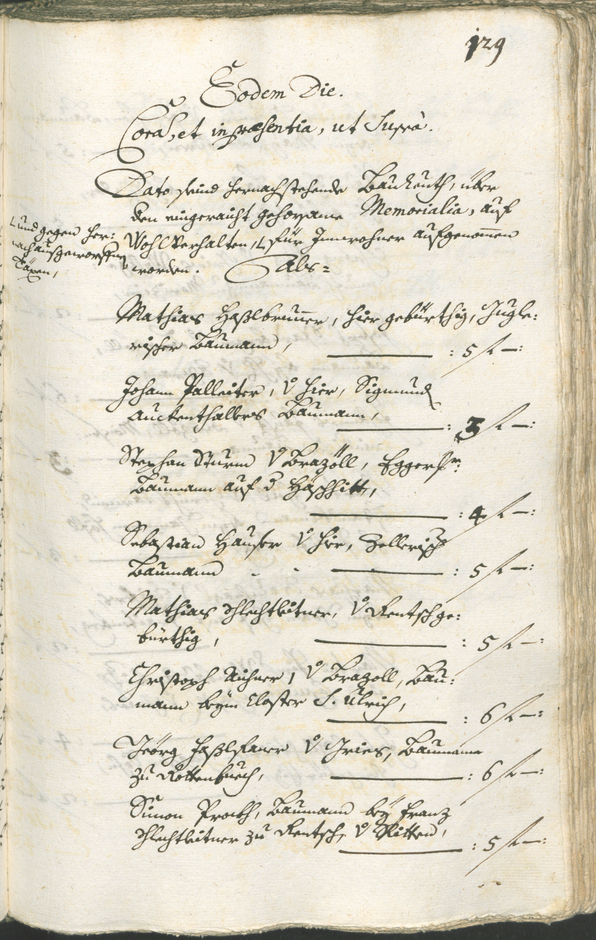 129
Eodem Die.
Coras, et in præsentia, ut Suprà.
Dato seind hernachstehende Bauleuth, über
den eingeraicht gehorsame Memorialia, auf
Wohlverhalten, für Innwohner aufgenommen
worden. Als=
und gegen her:
nach außgeworffnen
Taxen,
Mathias Haßlbrunner, hier gebürthig,
rischer Baumann, : 5 f —:
Johann Palleiter, v hier, Sigmund
Auckenthallers Baumann, : 3 f —:
Stephan Sturm v Brazöll,
Baumann auf d : 4 f —:
Sebastian Hauser v hier, Zellerisch
Baumann - - : 5 f —:
Mathias Schlechtleitner, v Rentsch ge:
bürthig, : 5 f —:
Christoph Aichner, v Brazoll, Bau:
mann beym Closter S. Ulrich, : 6 f —:
Jeörg v Gries, Baumann
zu Rottenbuech, : 6 f —:
Simon Proth, Baumann bey Franz
Schlechtleitner zu Rentsch, v Ritten, : 5 f —: